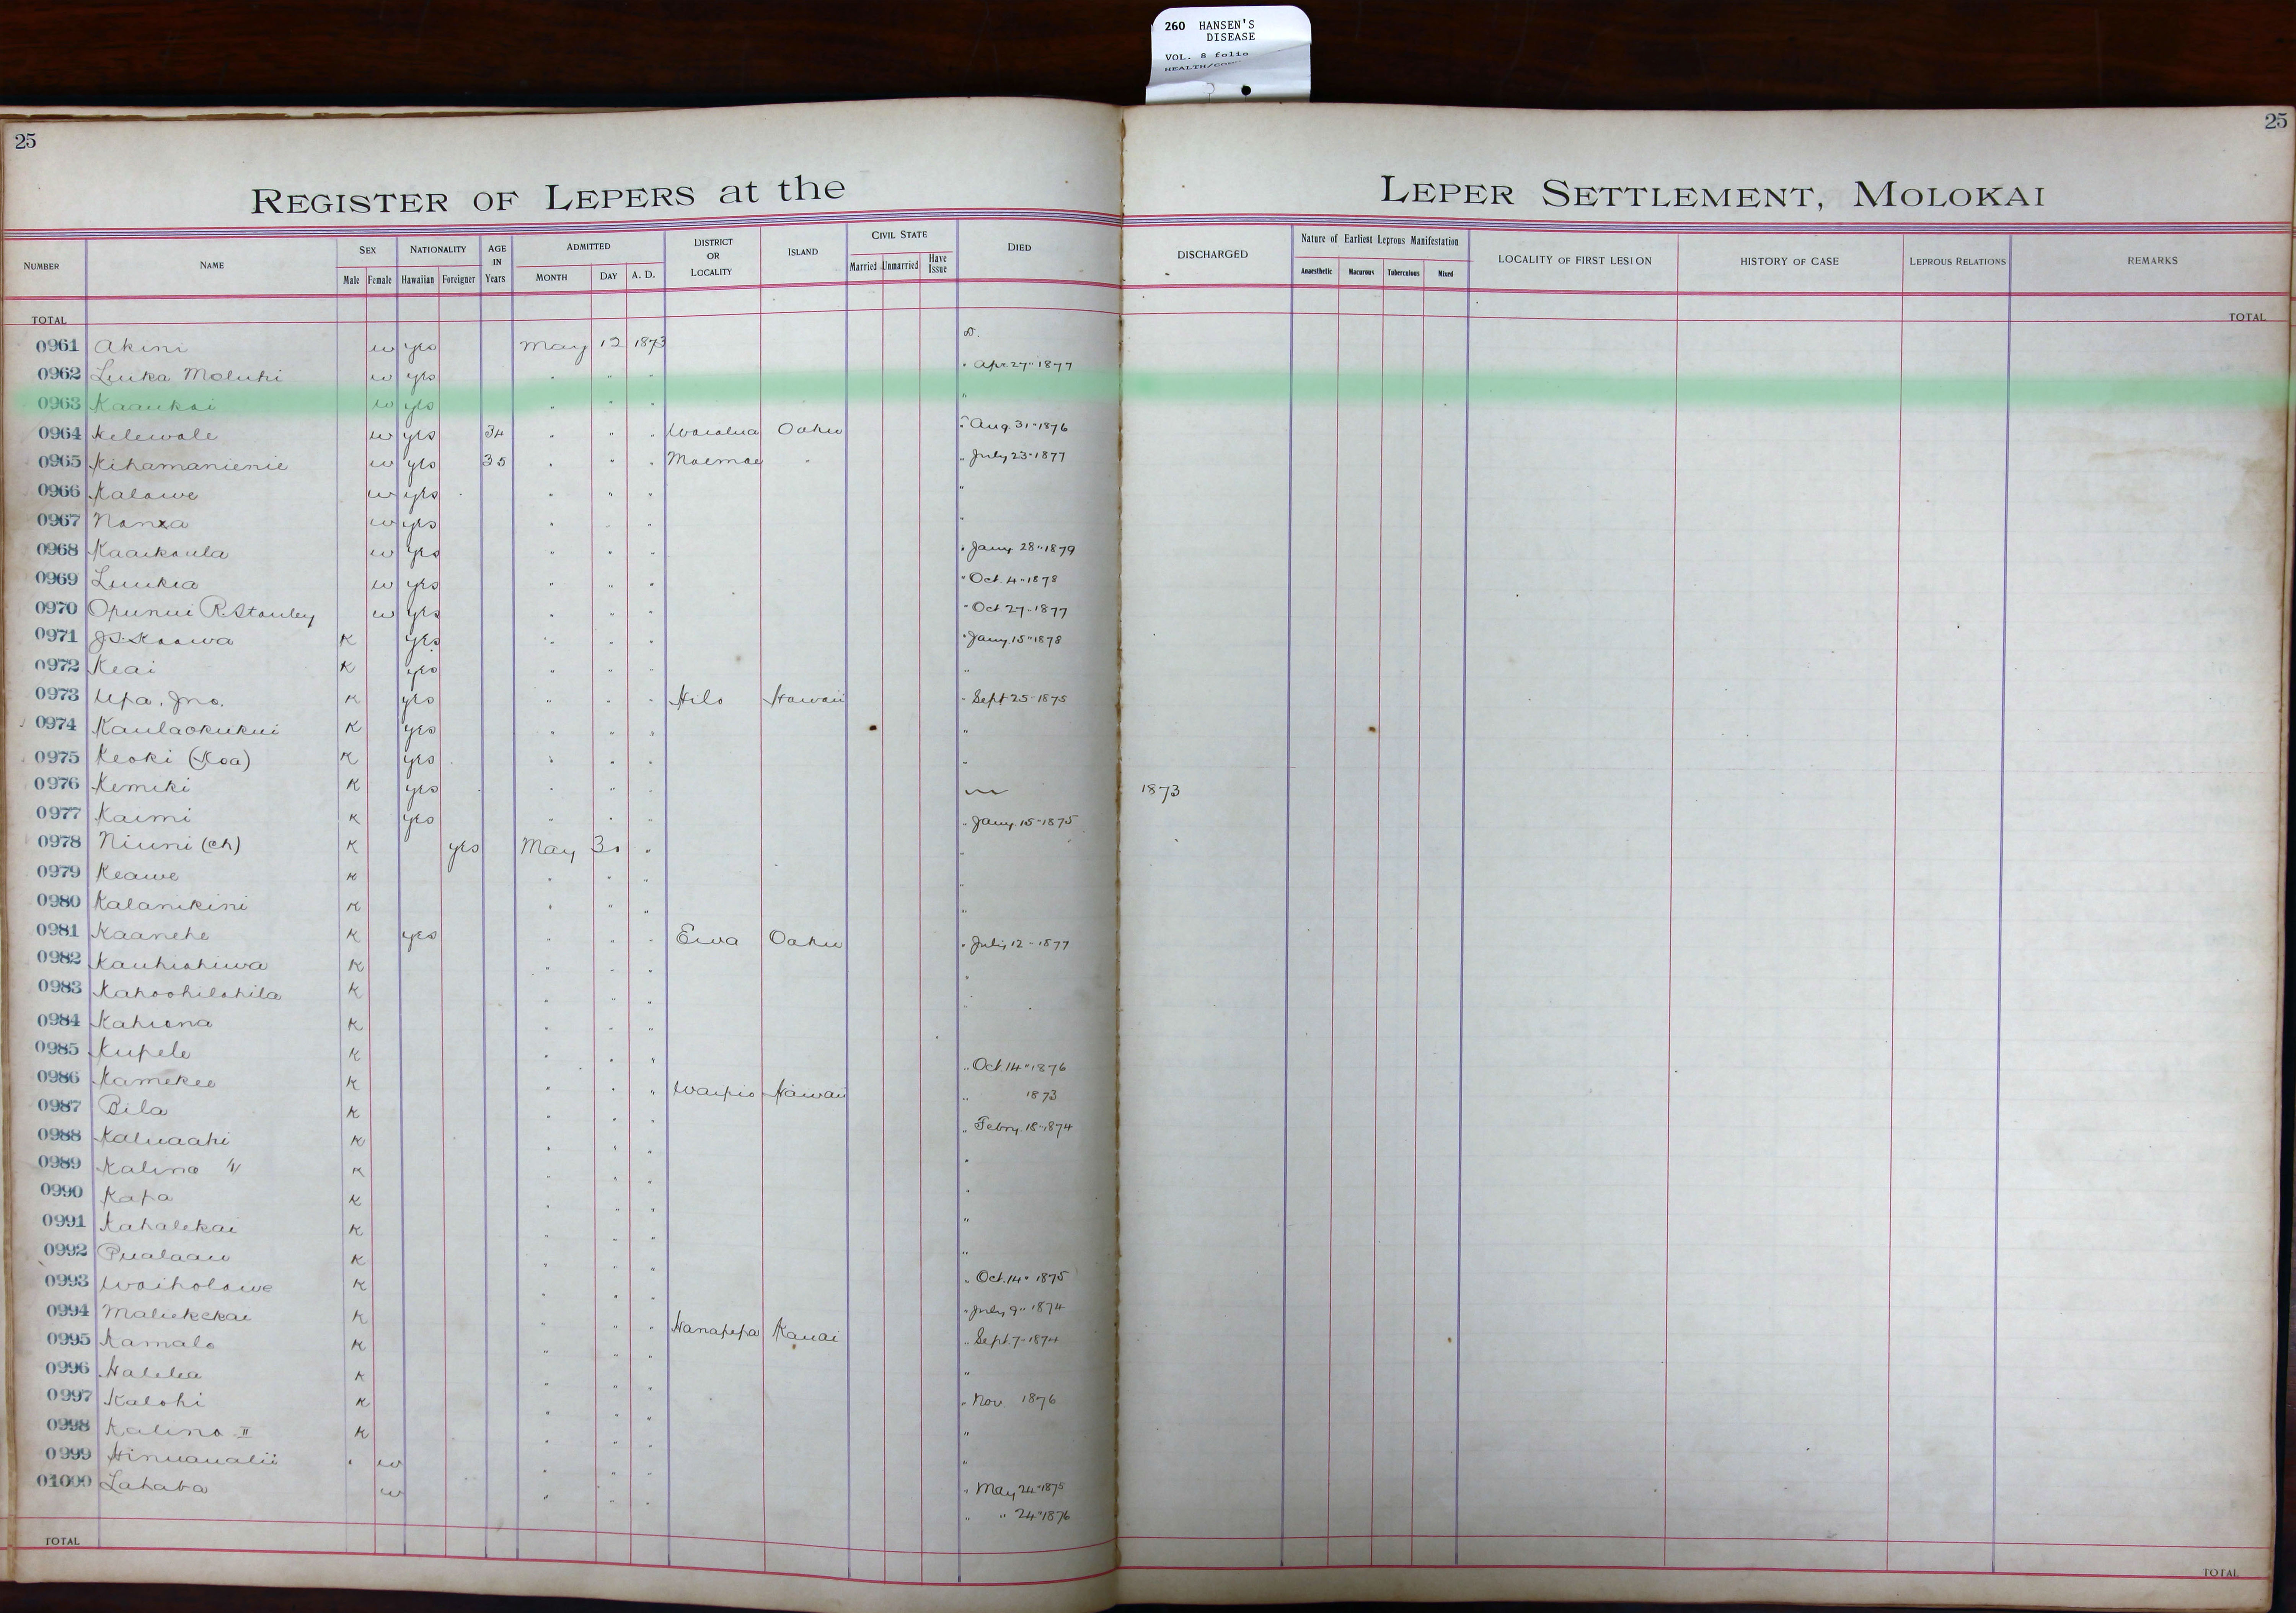 260 HANSEN'S
DISEASE
VOL. 8 folio
25
25
REGISTER OF LEPERS at the LEPER SETTLEMENT, MOLOKAI
NUMBER NAME SEX Male Female NATIONALITY Hawaiian Foreigner AGE IN Years ADMITTED MONTH DAY A. D. DISTRICT OR LOCALITY ISLAND CIVIL STATE Married Unmarried Have Issue DIED DISCHARGED Nature of Earliest Leprous Manifestation Anaesthetic Macurous Tuberculous Mixed LOCALITY OF FIRST LESION HISTORY OF CASE LEPROUS RELATIONS REMARKS
TOTAL TOTAL
0961 Akini w yes May 12 1873 D.
0962 Luika Moluhi w yes " " " " Apr. 27" 1877
0963 Kaaukai w yes " " " "
0964 Kelewale w yes 34 " " " Waialua Oahu " Aug. 31" 1876
0965 Kihamanienie w yes 35 " " " Moemoe " " July 23" 1877
0966 Kalawe w yes " " " "
0967 w yes " " " "
0968 Kaaikaula w yes " " " " Jany 28" 1879
0969 Luukia w yes " " " " Oct. 4" 1878
0970 Opunui R. Stanley w yes " " " " Oct 27" 1877
0971 J.S. Kaawa K yes " " " " Jany. 15" 1878
0972 Keai K yes " " " "
0973 Upa, Jno. K yes " " " Hilo Hawaii " Sept 25" 1875
0974 Kaulaokukui K yes " " " "
0975 Keoki (Koa) K yes " " " "
0976 Kemiki K yes " " " 1873
0977 Kaimi K yes " " " " Jany. 15" 1875
0978 Niuni (ch) K yes May 30 " "
0979 Keawe K " " " "
0980 Kalanikini K " " " "
0981 Kaanehe K yes " " " Ewa Oahu " July 12" 1877
0982 Kauhiohiwa K " " " "
0983 Kahoohilohila K " " " "
0984 Kahiona K " " "
0985 Kupele K " " " " Oct. 14" 1876
0986 Kamekeo K " " " Waipio Hawaii " 1873
0987 Bila K " " " " Febry. 18" 1874
0988 Kaluaahi K " " " "
0989 Kalino K " " " "
0990 Kapa K " " " "
0991 Kahalekai K " " " "
0992 Pualaau K " " " " Oct. 14" 1875
0993 Waiholowe K " " " " July 9" 1874
0994 Maliekekai K " " " Hanapepa Kauai " Sept. 7" 1874
0995 Kamalo K " " " "
0996 Halelea K " " " " Nov. 1876
0997 Kalohi K " " " "
0998 Kalino II K " " " "
0999 Hinuaualii " w " " " " May 24" 1875
01000 Lahaba w " " " " " 24" 1876
TOTAL TOTAL